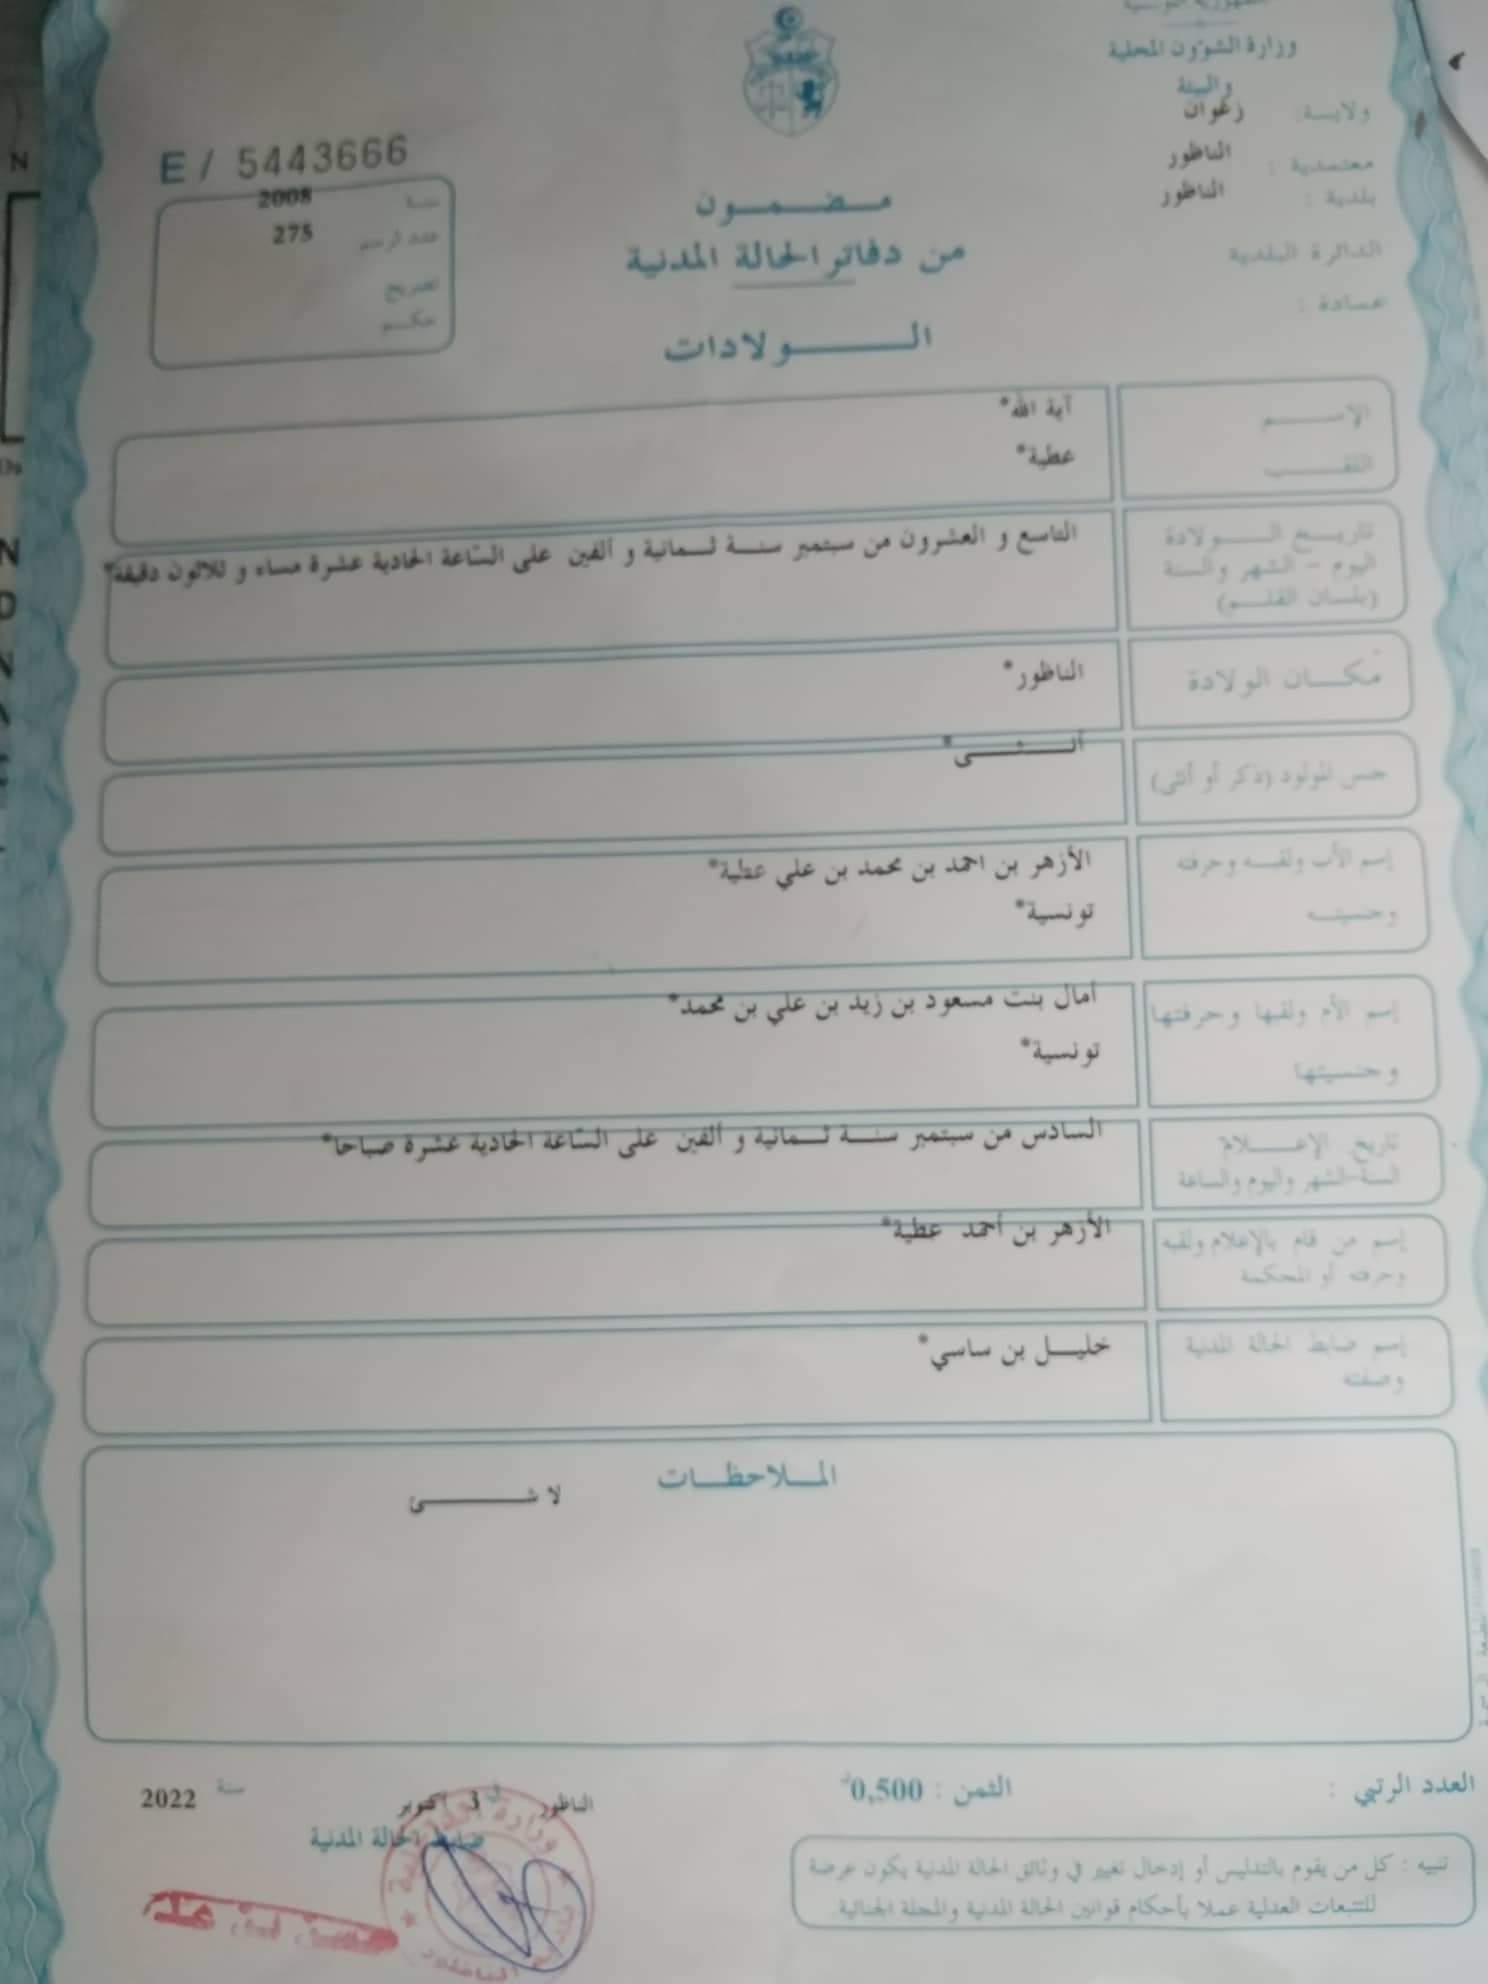 وزارة الشؤون المحلية
والبيئة
ولاية: زغوان
معتمدية : الناظور
بلدية : الناظور
الدائرة البلدية
عمادة :
E / 5443666
سنة 2008
عدد الرسم 275
تصريح
حكم
مضمون
من دفاتر الحالة المدنية
الولادات
الإسم آية الله*
اللقب عطية*
تاريخ الولادة
اليوم - الشهر والسنة
(بلسان القلم)
التاسع و العشرون من سبتمبر سنة ثمانية و ألفين على الساعة الحادية عشرة مساء و ثلاثون دقيقة*
مكان الولادة الناظور*
جنس المولود (ذكر أو أنثى) أنثى*
إسم الأب ولقبه وحرفته الأزهر بن احمد بن محمد بن علي عطية*
وجنسيته تونسية*
إسم الأم ولقبها وحرفتها أمال بنت مسعود بن زيد بن علي بن محمد*
وجنسيتها تونسية*
تاريخ الإعلام
السنة-الشهر واليوم والساعة
السادس من سبتمبر سنة ثمانية و ألفين على الساعة الحادية عشرة صباحا*
إسم من قام بالإعلام ولقبه
وحرفته أو المحكمة
الأزهر بن أحمد عطية*
إسم ضابط الحالة المدنية
وصفته
خليل بن ساسي*
الملاحظات
لا شئ
العدد الرتبي :
الثمن : 0,500د
الناظور في 3 اكتوبر سنة 2022
ضابط الحالة المدنية
تنبيه : كل من يقوم بالتدليس أو إدخال تغيير في وثائق الحالة المدنية يكون عرضة
للتتبعات العدلية عملا بأحكام قوانين الحالة المدنية والمجلة الجنائية.